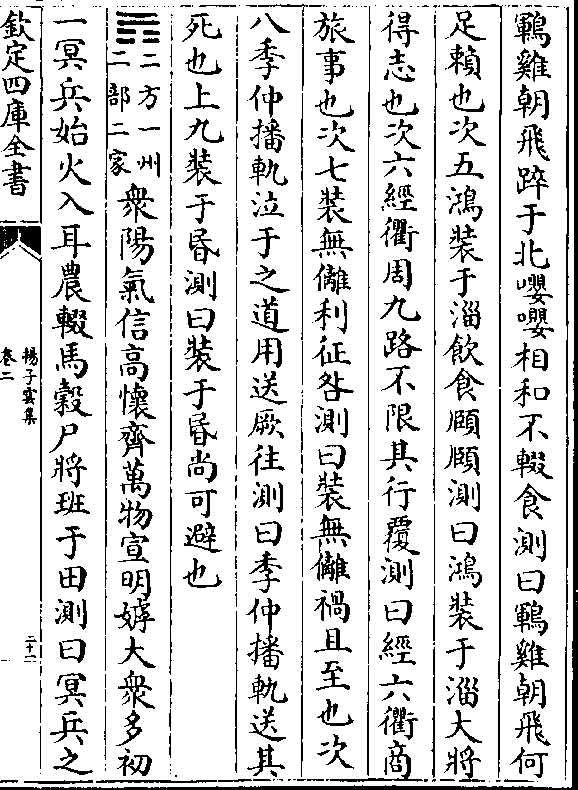 鶤雞朝飛踤于北嚶嚶相和不輟食測曰鶤雞朝飛何
足賴也次五鴻裝于淄飲食頤頤測曰鴻裝于淄大將
得志也次六經衢周九路不限其行覆測曰經六衢商
旅事也次七裝無儺利征咎測曰裝無儺禍且至也次
八季仲播軌泣于之道用送厥往測曰季仲播軌送其
死也上九裝于昏測曰裝于昏尚可避也
二方一州
二部二家
衆陽氣信高懷齊萬物宣明嫭大衆多初
一冥兵始火入耳農輟馬穀尸將班于田測曰冥兵之
欽定四庫全書
揚子雲集
卷二
二十一